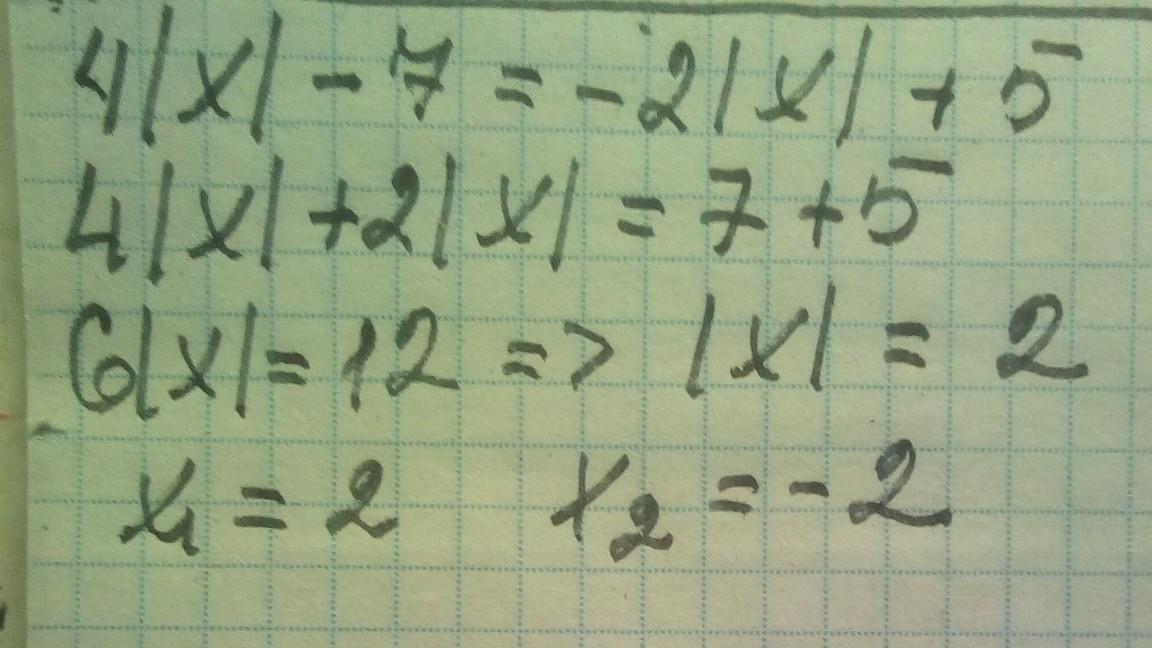 4|x| - 7 = -2|x| + 5
4|x| + 2|x| = 7 + 5
6|x| = 12 => |x| = 2
x₁ = 2 x₂ = -2